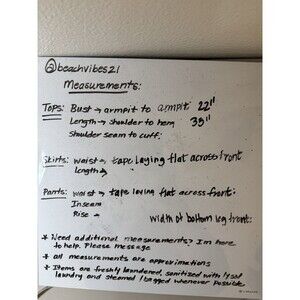 @beachvibes21
Measurements:
Tops: Bust → armpit to armpit 22"
Length → shoulder to hem 35"
Shoulder seam to cuff:
Skirts: waist → tape laying flat across front
Length →
Pants: waist → tape laying flat across front:
Inseam
Rise - width of bottom leg front:
* Need additional measurements? I'm here
to help. Please message
* All measurements are approximations
* Items are freshly laundered, sanitized with lysol
laundry and steamed | bagged whenever possible